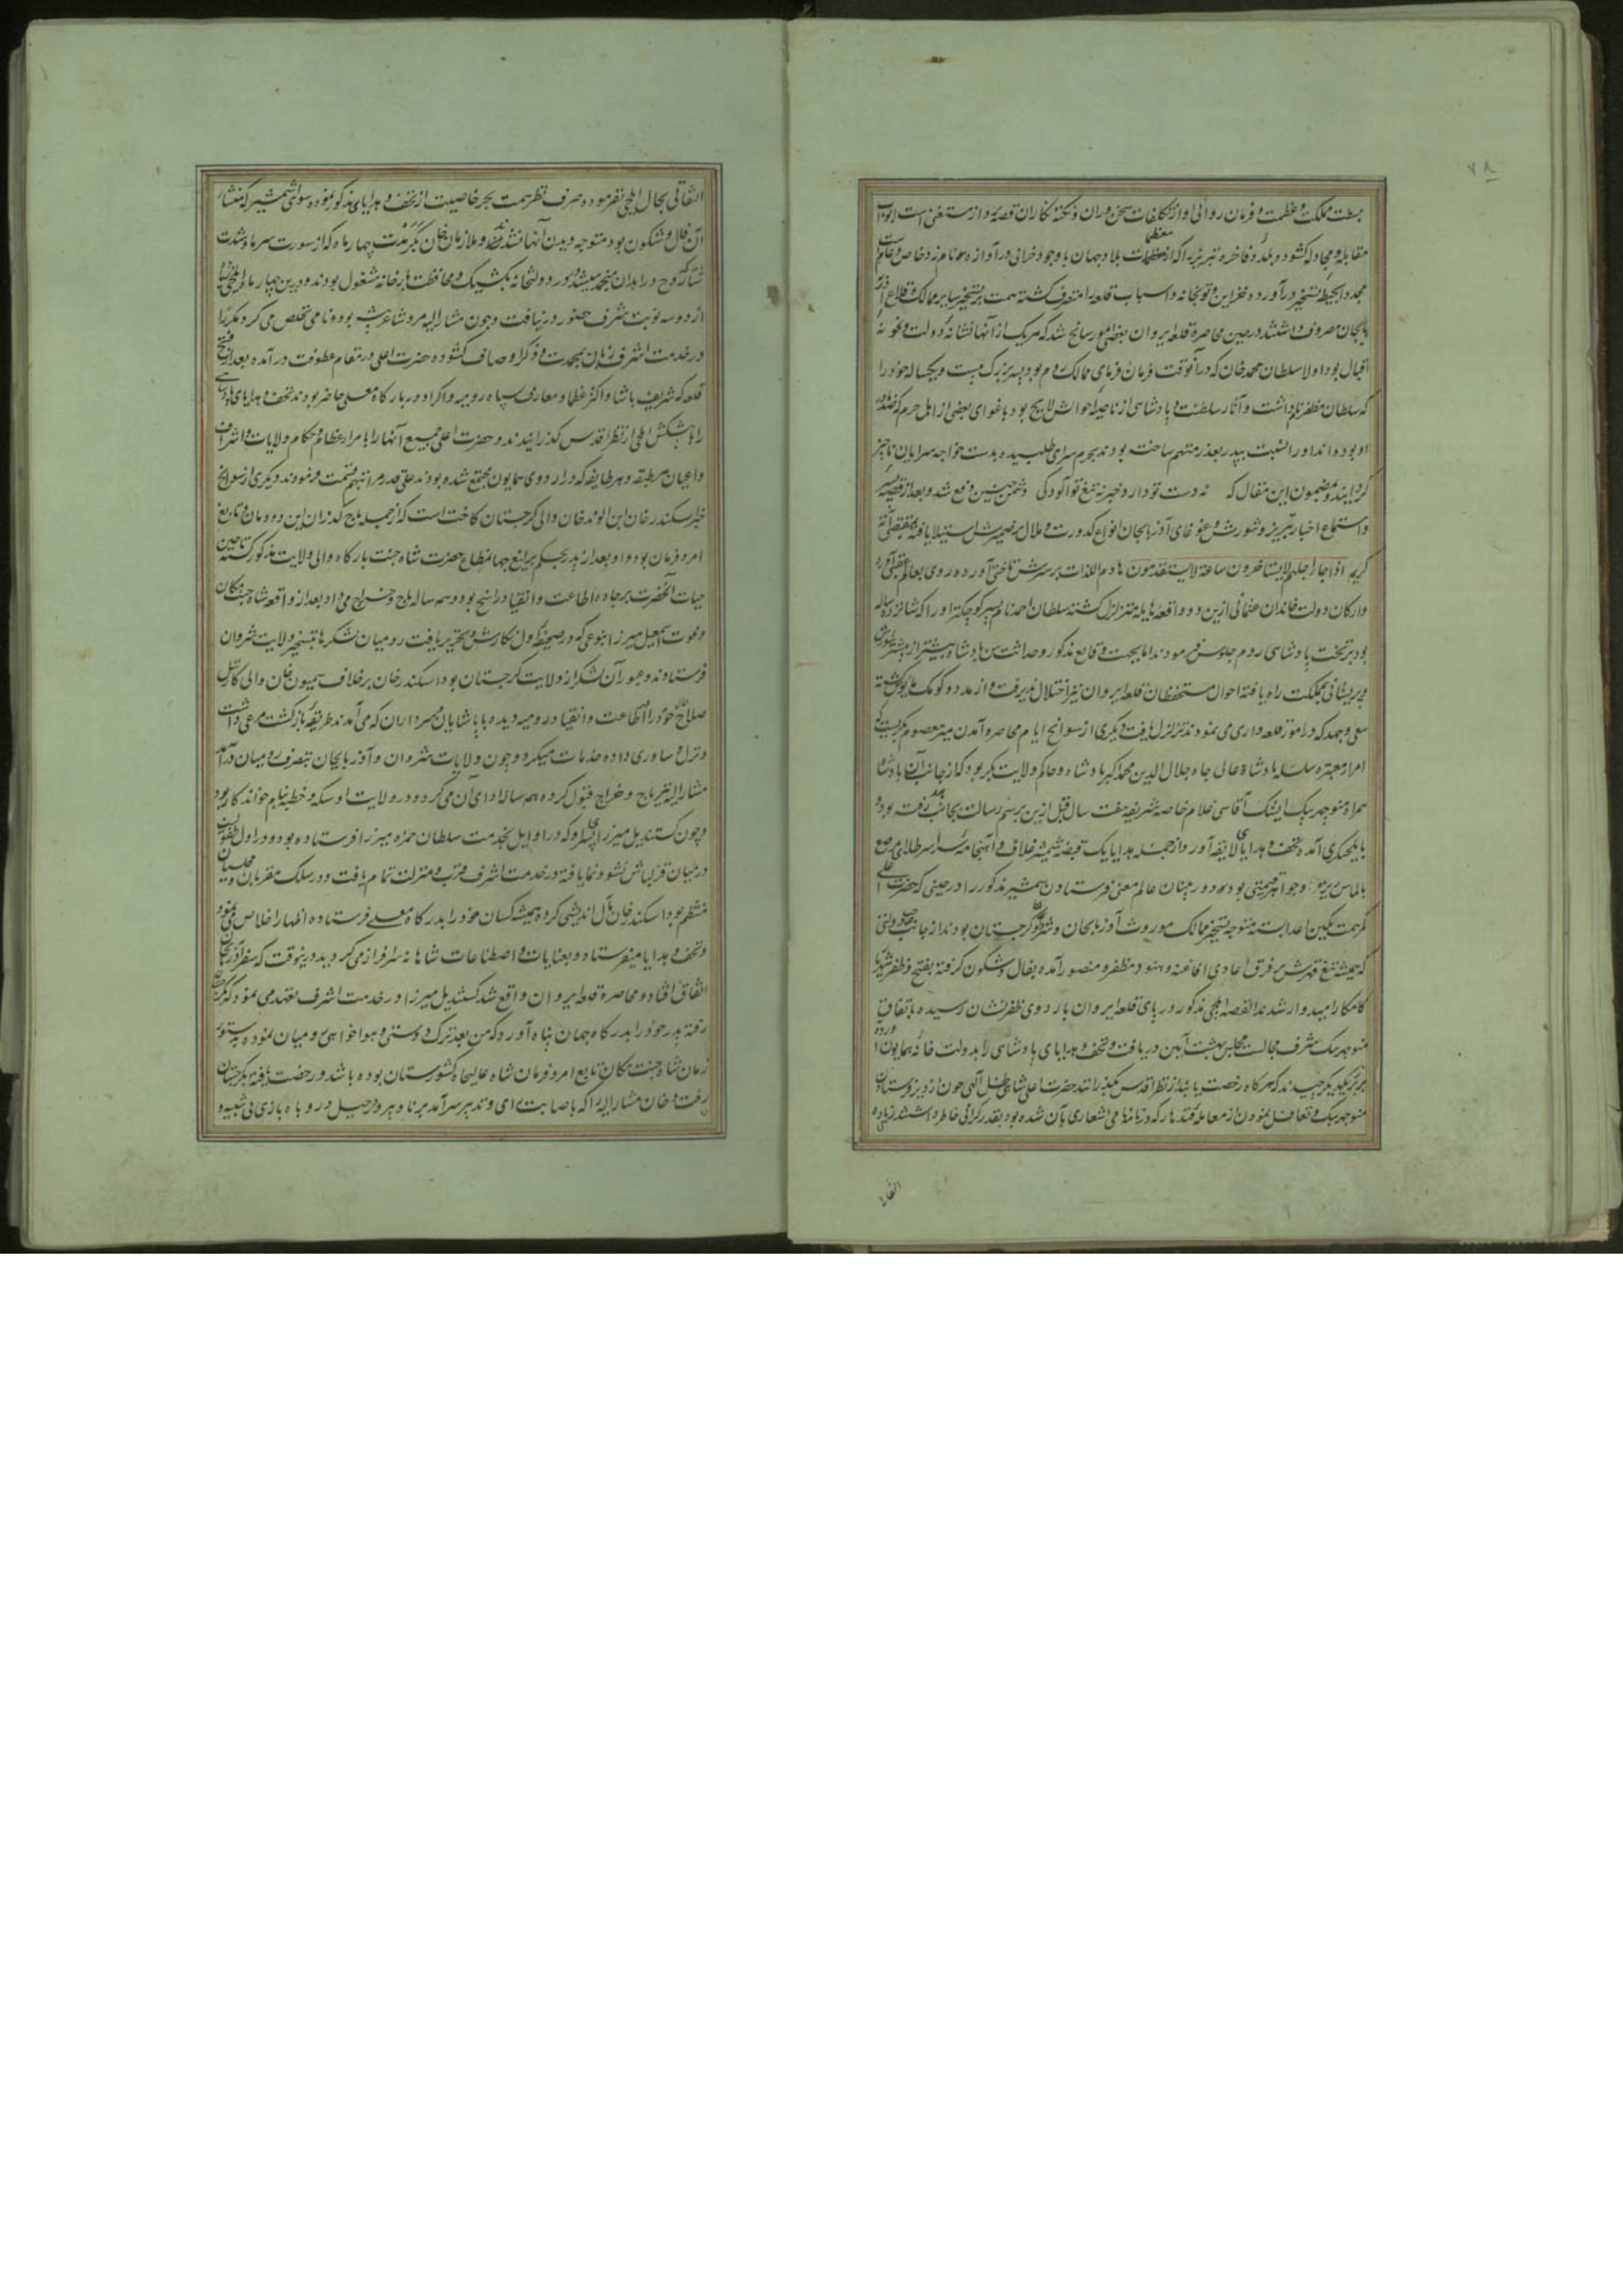 ۷۸
مملکت و عظمت و فرمان روائی او از تکلفات سخن وران و نکته نکاران قصه پرداز مستغنی است ابواب
مقابله و مجادله کشوده بلده فاخره تبریز را که از معظمات بلاد جهان با وجود خرابی در آوازه نام زد خاص و عام است
مجددا بحیطه تسخیر درآورده خزاین و توپخانه و اسباب قلعه را متصرف کشته همت بتسخیر سایر ممالک و قلاع آذر
بایجان مصروف داشتند در حین محاصره قلعه ایروان بعضی امور سانح شد که هر یک از آنها نشانه دولت و نمونه
اقبال بود اولا سلطان محمد خان که در آنوقت فرمان فرمای ممالک روم بود پسر بزرک بیست و یکساله خود را
که سلطان نام داشت و آثار سلطنت و پادشاهی از ناصیه احوالش لایح بود باغوای بعضی از اهل حرم که ضد مادر
او بوده اند او را نسبت بپدر بعذر متهم ساخته بودند بحرم سرای طلبیده بدست خواجه سرایان ناچیز
کردانیدند و مضمون این مقال که نه دست تو دارد خبر نه تیغ تو آلودکی دشمن چنین دفع شد و بعد از قضیه پسر
و استماع اخبار تبریز و شورش و غوغای آذربایجان انواع کدورت و ملال بر ضمیرش استیلا یافته بمقتضی آیه
کریمه اذا جاء اجلهم لا یستاخرون ساعة و لا یستقدمون هادم اللذات بر سرش تاختن آورده روی بعالم عقبی آورد
و ارکان دولت خاندان عثمانی ازین دو واقعه هایله متزلزل کشته سلطان احمد نام پسر کوچکتر او را که شانزده ساله
بود بر تخت پادشاهی روم جلوس فرمودند اما بجهت وقایع مذکور و حداثت سن پادشاه بیشتر از پیشتر شورش
و پریشانی بمملکت راه یافته احوال مستحفظان قلعه ایروان نیز اختلال پذیرفت و از مدد و کومک مایوس کشته
سعی و جهد که در امور قلعه داری می نمودند تزلزل یافت و دیکری از سوانح ایام محاصره آمدن میر معصوم بکریست که
امراء معتبره سلسله پادشاه عالی جاه جلال الدین محمد اکبر پادشاه و حاکم ولایت بکر بود که از جانب آن پادشاه
همراه منوچهر بیک ایشک آقاسی غلام خاصه شریفه هفت سال قبل ازین برسم رسالت بجانب هند رفته بود و
بایلچیکری آمده تحف و هدایای لایقه آورد از جمله هدایا یک قبضه شمشیر غلاف و سراسر طلای مرصع
بالماس و جواهر قیمتی بود و در بینان عالم معنی فرستادن شمشیر مذکور را در حینی که حضرت اعلی
کمر همت بکین اعدا بسته متوجه تسخیر ممالک موروث آذربایجان و شیروان و کرجستان بودند از جانب دولتی
که همیشه تیغ قهرش بر فرق اعادی افاغنه و هنود مظفر و منصور آمده بفال و شکون کرفته بفتح و ظفر شهریار
کامکار امیدوار شدند القصه ایلچی مذکور در پای قلعه ایروان باردوی ظفر نشان رسیده باتفاق
منوچهر بیک شرف مجالست مجلس بهشت آیین دریافت و تحف و هدایای پادشاهی را بدولت خانه همایون آورده
بر یکدیکر چیدند که هرکاه رخصت یابند از نظر اقدس بکذرانند حضرت اعلی شاهی ظل اللهی چون از دیر فرستادن
منوچهر بیک و تغافل نمودن از معامله قندهار که در نامهای اشعاری بآن شده بود بقدر کرانی خاطر داشتند زیاده
التفاتی
التفاتی بحال ایلچی نفرموده صرف نظر همت بحر خاصیت از تحف و هدایای مذکور نموده سوای شمشیر که منشاء
آن فال و شکون بود متوجه دیدن آنها نشدند و ملازمان خان بکر مدت چهار ماه که از سورت سرما و شدت
شتا که روح در ابدان منجمد میشد در دور دولتخانه بکشیک و محافظت بارخانه مشغول بودند و درین چهار ماه ایلچی زیاده
از دو سه نوبت بشرف حضور در نیافت و چون مشار الیه مرد شاعر پیشه بود و نامی تخلص می کرد مکررا
در خدمت اشرف زبان بمحمدت و ذکر اوصاف کشوده حضرت اعلی در مقام عطوفت درآمده بعد از فتح
قلعه که شریف پاشا و اکثر عظما و معارف سپاه رومیه و اکراد در بارکاه معلی حاضر بودند تحف و هدایای پادشاهی
را با پیشکش ایلچی از نظر اقدس کذرانیدند و حضرت اعلی جمیع آنها را بامراء عظام و حکام ولایات و اشراف
و اعیان هر طبقه و هر طایفه که در اردوی همایون مجتمع شده بودند علی قدر مراتبهم قسمت فرمودند دیکری از سوانح
خبر اسکندر خان ابن الوند خان والی کرجستان کاخت است که از جمله باج کذاران این دودمان و تابع
امر و فرمان بود و او بعد از پدر بحکم یرلیغ جهانمطاع حضرت شاه جنت بارکاه والی ولایت مذکور کشته تا حین
حیات آنحضرت بر جاده اطاعت و انقیاد راسخ بود و همه ساله باج و خراج می داد بعد از واقعه شاه جنت مکان
و فوت اسمعیل میرزا بنوعی که در صحیفه اول نکارش و تحریر یافت رومیان لشکرها بتسخیر ولایت شروان
فرستادند و عبور آن لشکر از ولایت کرجستان بود اسکندر خان بر خلاف سمیون خان والی کارتیل
صلاح خود را در اطاعت و انقیاد رومیه دیده با پاشایان و سرداران که می آمدند طریقه بازکشت مرعی داشت
و نزل و ساوری داده خدمات میکرد و چون ولایات شروان و آذربایجان بتصرف رومیان درآمد
مشار الیه نیز باج و خراج قبول کرده همه ساله ادای آن می کرد و در ولایت او سکه و خطبه بنام خواندکار بود
و چون کستندیل میرزا پسر او که در اوایل بخدمت سلطان حمزه میرزا فرستاده بود و در اول طفولیت
در میان قزلباش نشو و نما یافته در خدمت اشرف قرب و منزلت تمام یافت و در سلک مقربان و مجلسیان
منتظم بود اسکندر خان مآل اندیشی کرده همیشه کسان خود را بدرکاه معلی فرستاده اظهار اخلاص می نمود
و تحف و هدایا میفرستاد و بعنایات و اصطناعات شاهانه سرافراز می کردید درینوقت که سفر آذربایجان
اتفاق افتاد و محاصره قلعه ایروان واقع شد کستندیل میرزا در خدمت اشرف تعهد می نمود که بکرجستان
رفته پدر خود را بدرکاه جهان پناه آورد که من بعد ترک دوستی و هواخواهی رومیان نموده بدستور
زمان شاه جنت مکان تابع امر و فرمان شاه عالیجاه کشورستان بوده باشد و رخصت یافته بکرجستان
رفت و خان مشار الیه را که باصابت رای و تدبیر سرآمد برنا و پیر و در حیل در روباه بازی بی شبیه و